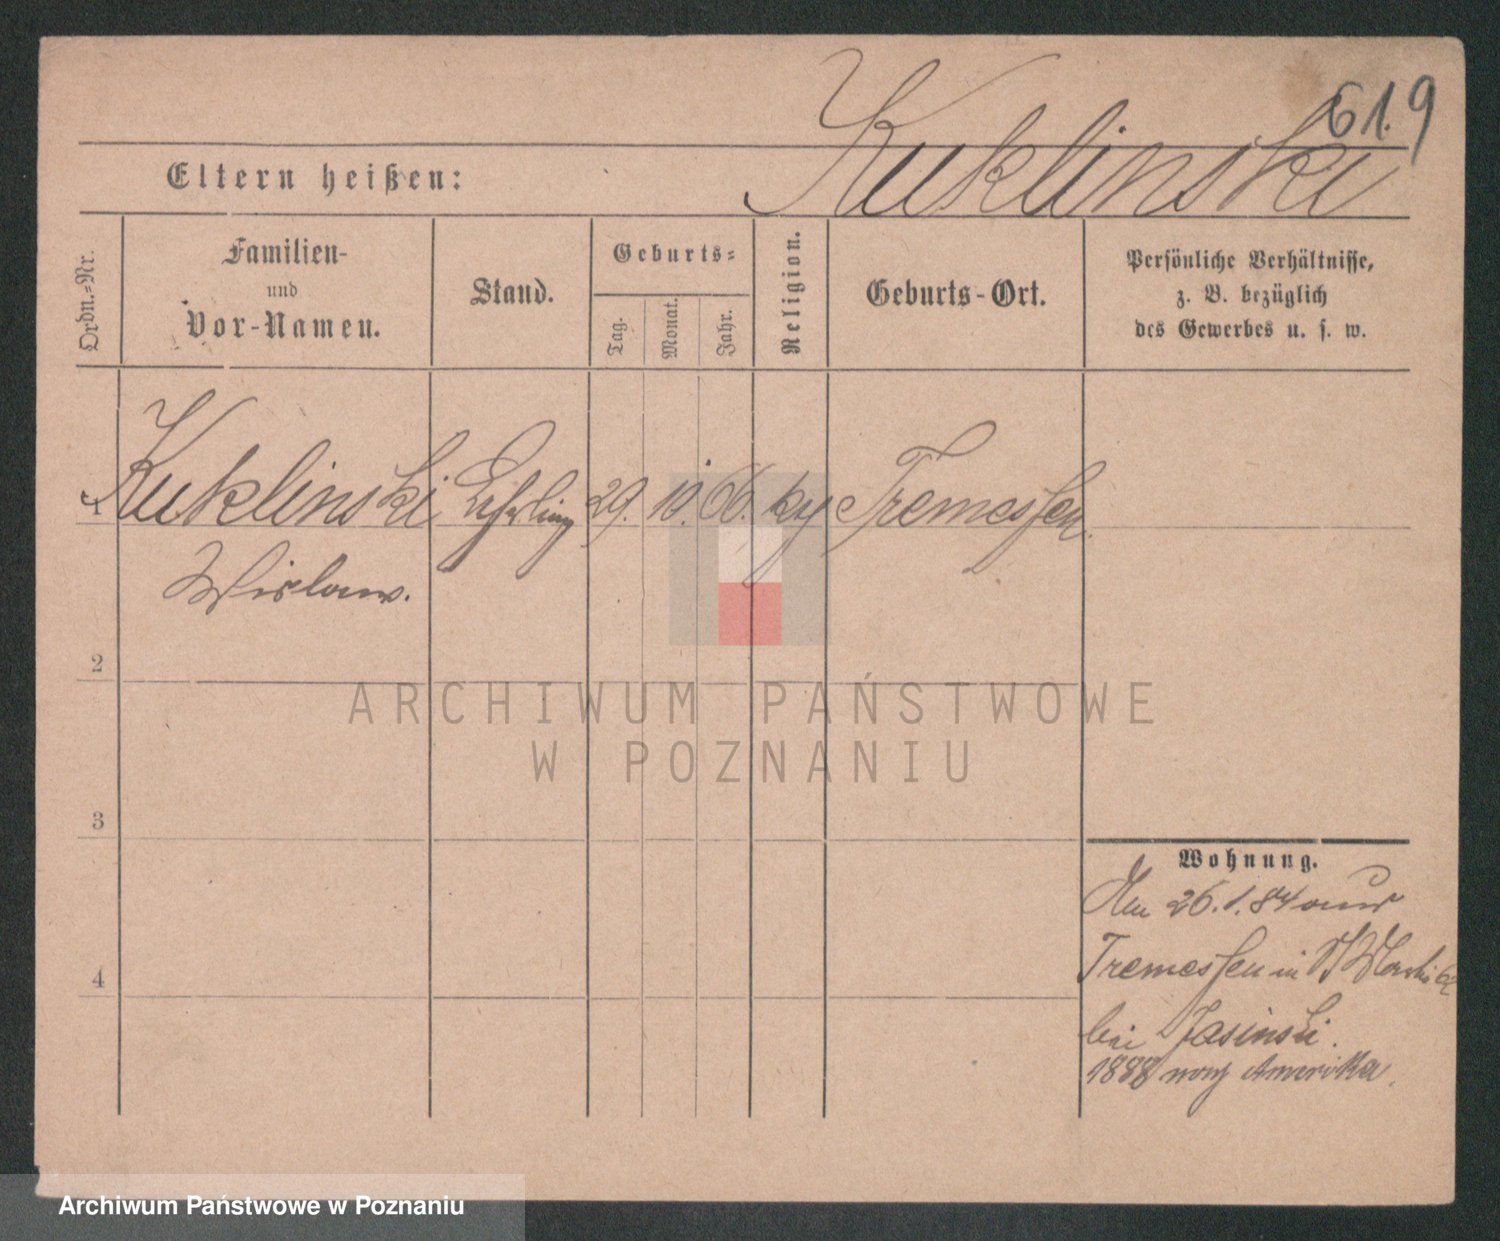 61.9
Eltern heißen: Kuklinski
Ordn.=Nr.
Familien-
und
Vor-Namen.
Stand.
Geburts=
Tag.
Monat.
Jahr.
Religion.
Geburts-Ort.
Persönliche Verhältnisse,
z. B. bezüglich
des Gewerbes u. s. w.
1 Kuklinski Lehrling 29. 10. 66. Tremessen
Wislaw.
2
3
4
ARCHIWUM PAŃSTWOWE
W POZNANIU
Wohnung.
26.1.84 aus
Tremessen in
bei Jasinski.
1888 nach Amerika.
Archiwum Państwowe w Poznaniu